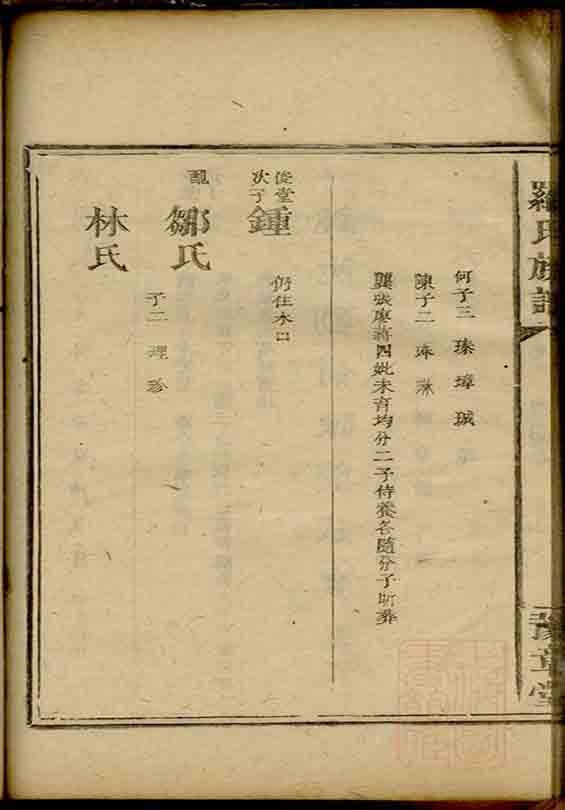 羅氏族譜
豫章堂
何子三 瑧璋珹
陳子二 琳
龔張廖蔣四妣未育均分二子侍養各隨分子所葬
從堂次子 鍾 仍住水口
妣 鄒氏
子二 理珍
林氏